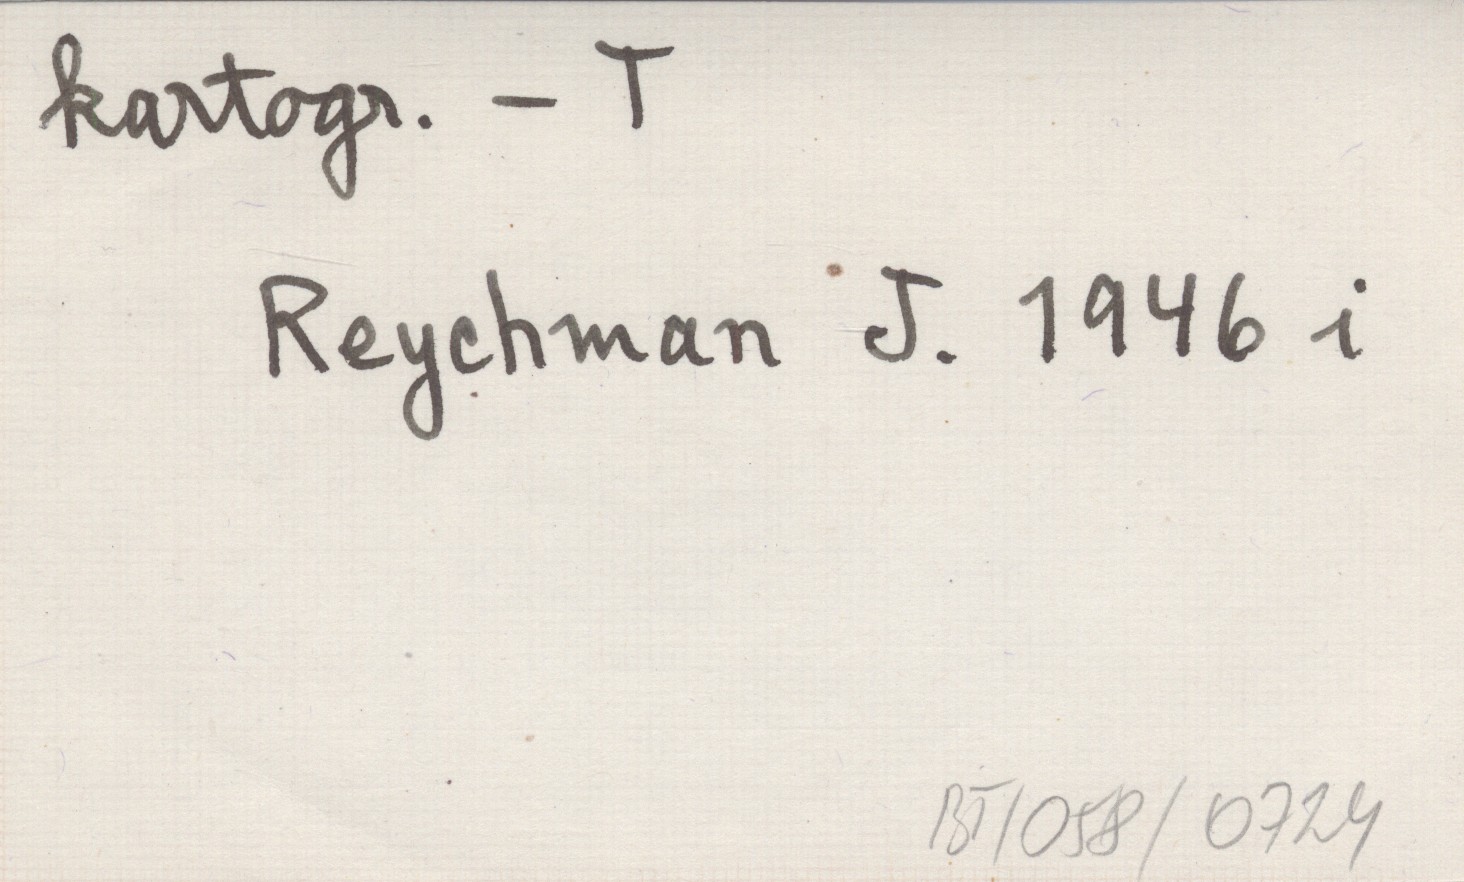 kartogr. – T
Reychman J. 1946 i
BT/058/0724